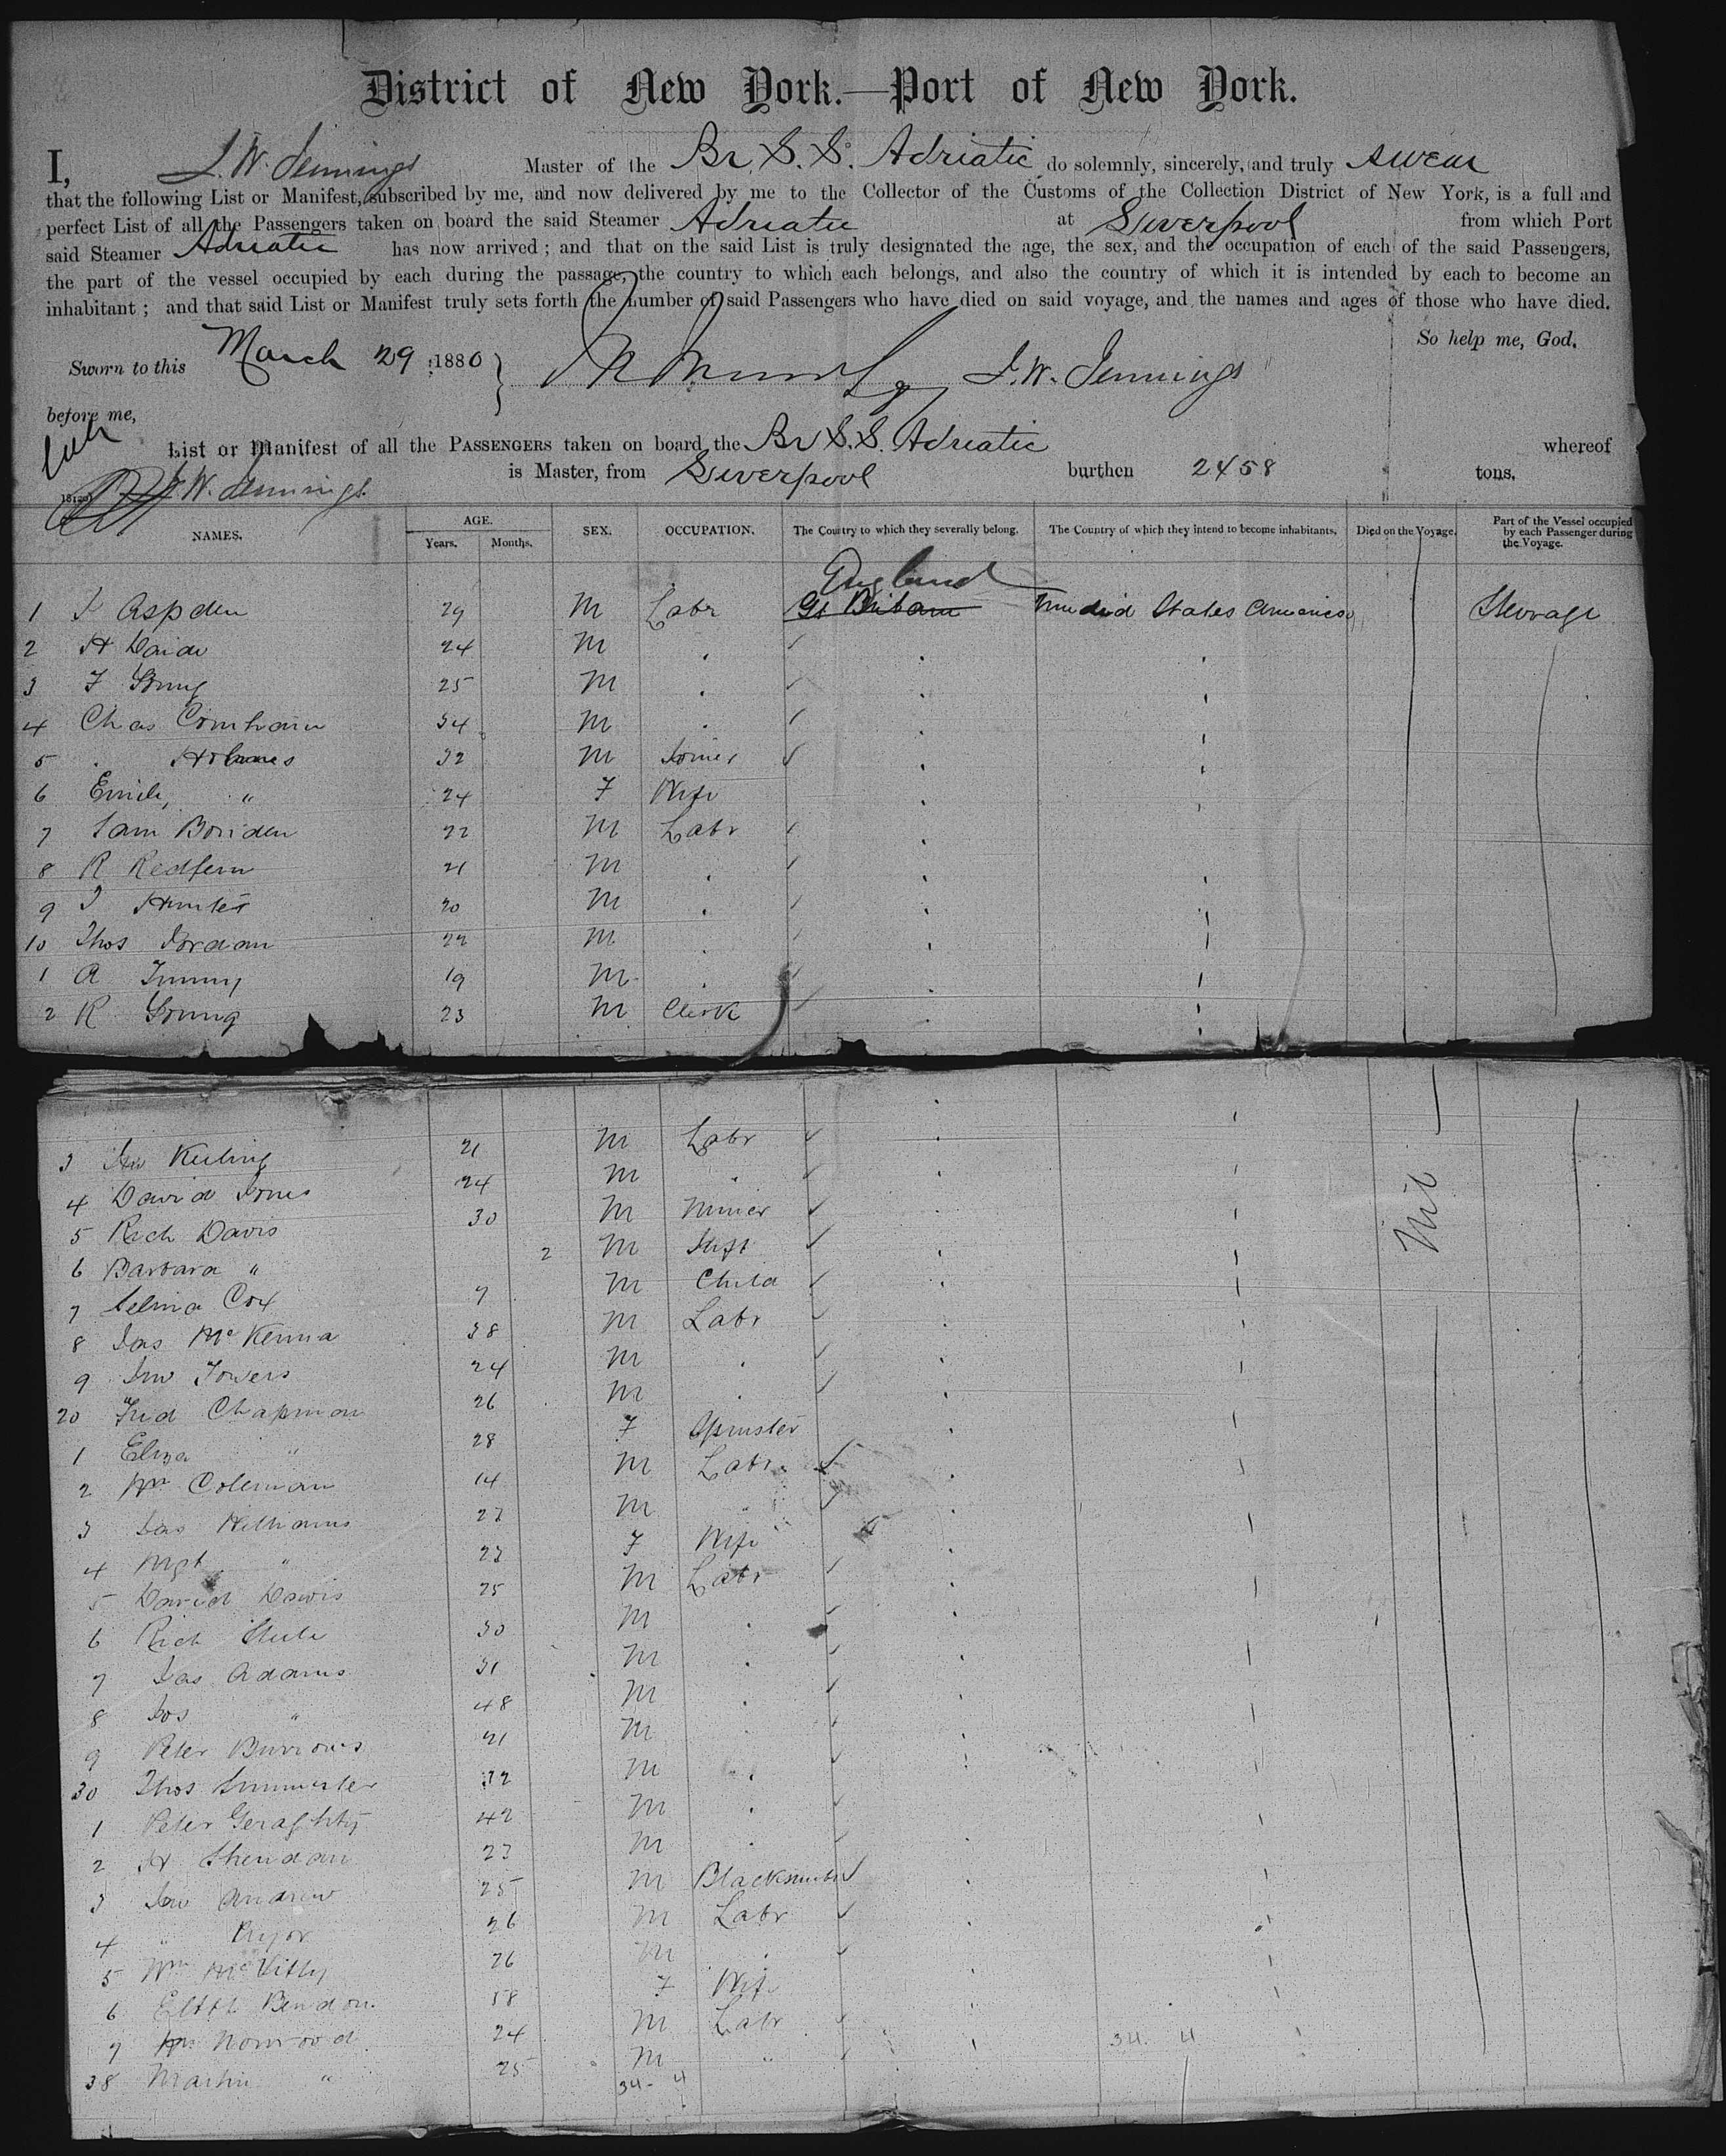 District of New York.—Port of New York.
I, J. W. Jennings Master of the Br. S. S. Adriatic do solemnly, sincerely, and truly swear
that the following List or Manifest, subscribed by me, and now delivered by me to the Collector of the Customs of the Collection District of New York, is a full and
perfect List of all the Passengers taken on board the said Steamer Adriatic at Liverpool from which Port
said Steamer Adriatic has now arrived ; and that on the said List is truly designated the age, the sex, and the occupation of each of the said Passengers,
the part of the vessel occupied by each during the passage, the country to which each belongs, and also the country of which it is intended by each to become an
inhabitant ; and that said List or Manifest truly sets forth the number of said Passengers who have died on said voyage, and the names and ages of those who have died.
So help me, God.
Sworn to this March 29 1880 J. W. Jennings
before me,
List or Manifest of all the PASSENGERS taken on board the Br S. S. Adriatic whereof
J. W. Jennings is Master, from Liverpool burthen 2458 tons.
NAMES. AGE. Years. Months. SEX. OCCUPATION. The Country to which they severally belong. The Country of which they intend to become inhabitants. Died on the Voyage. Part of the Vessel occupied by each Passenger during the Voyage.
England
1 J Aspden 29 M Labr Gt Britain United States America Steerage
2 H 24 M
3 F Young 25 M
4 Chas Cornhain 34 M
5 Holmes 32 M Joiner
6 Emily " 24 F Wife
7 Sam Borden 22 M Labr
8 R Redfern 21 M
9 J Hunter 20 M
10 Thos Jordan 22 M
1 A 19 M
2 R Young 23 M Clerk
3 Jno Keeling 21 M Labr
4 David Jones 24 M
5 Rich Davis 30 M Miner
6 Barbara " 2 M
7 Selina Cox 7 M Child
8 Jas McKenna 38 M Labr
9 Jno Towers 24 M
20 Fred Chapman 26 M
1 Eliza " 28 F Spinster
2 Wm Coleman 14 M Labr
3 Jas Williams 27 M "
4 Mgt " 27 F Wife
5 David Davis 25 M Labr
6 Rich Steele 30 M
7 Jas Adams 31 M
8 Jos " 48 M
9 Peter Burrows 21 M
30 Thos 32 M
1 Peter Geraghty 42 M
2 H Sheridan 23 M
3 Jno Andrew 25 M Blacksmith
4 " Pryor 26 M Labr
5 Wm McVitty 26 M
6 Elzth Bendon 58 F Wife
7 Wm Norwood 24 M Labr
38 Martin " 25 M "
Nil
34 - 4
34. 4